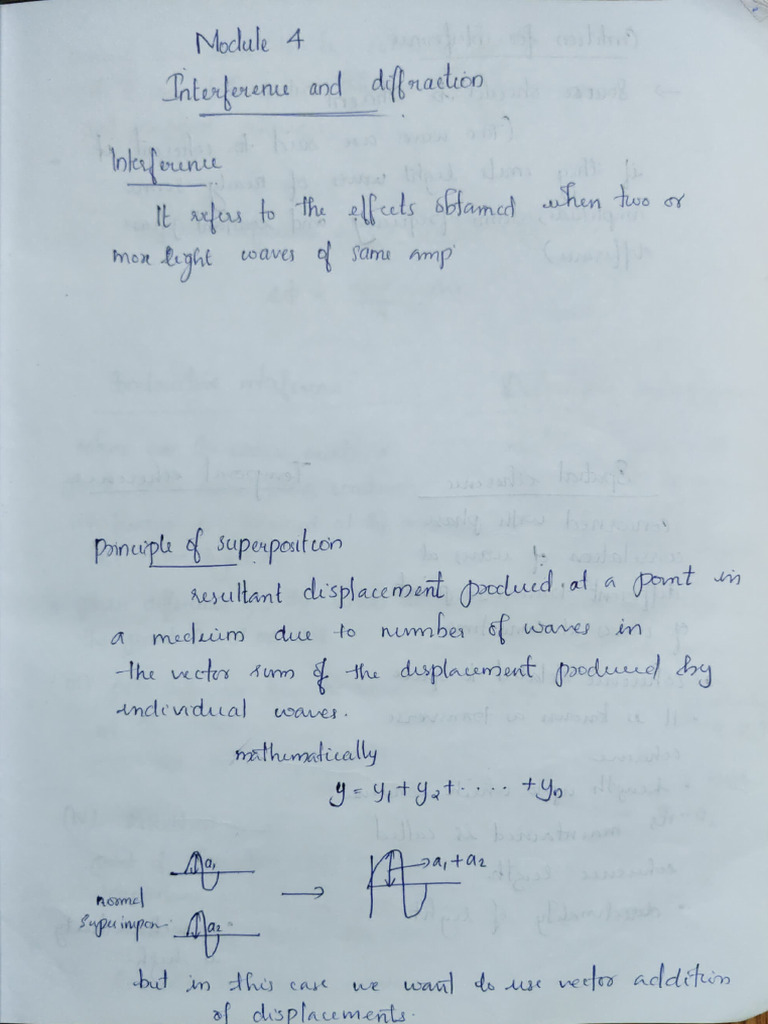 Module 4
Interference and diffraction
Interference
It refers to the effects obtained when two or
more light waves of same amp
principle of superposition
resultant displacement produced at a point in
a medium due to number of waves in
the vector sum of the displacement produced by
individual waves.
mathematically
y = y₁ + y₂ + ..... + yₙ
a₁
→ a₁ + a₂
normal
superimpon.
a₂
but in this case we want to use vector addition
of displacements.